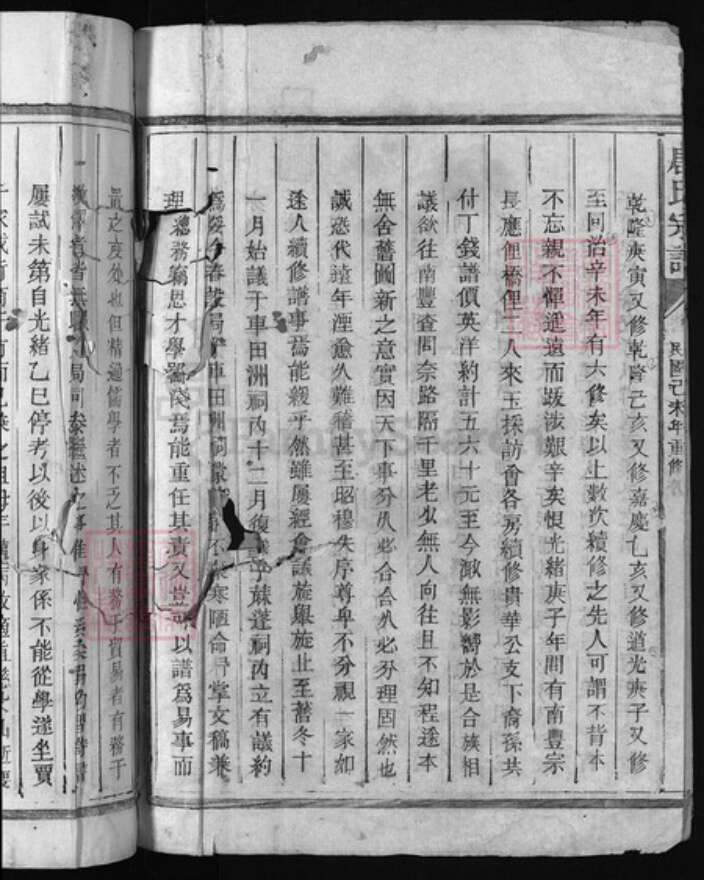 氏宗譜
民國己未年重修
乾隆庚寅又修乾隆己亥又修嘉慶乙亥又修道光庚子又修
至同治辛未年有六修矣以上數次續修之先人可謂不背本
不忘親不憚遥遠而跋涉艱辛矣恨光緒庚子年間有南豐宗
長應俚橋俚二人來玉採訪會各房續修貴華公支下裔孫共
付丁錢譜價英洋約計五六十元至今渺無影響於是合族相
議欲往南豐查問奈路隔千里老幼無人向往且不知程途本
無舍舊圖新之意實因天下事分久必合合久必分理固然也
誠恐代遠年湮愈久難稽甚至昭穆失序尊卑不分視一家如
途人續修譜事焉能緩乎然雖屢經會議旋舉旋止至舊冬十
一月始議于車田洲祠內十二月復議于蔴蓬祠內立有議約
爲妥今春設局于車田洲祠蒙不棄寒陋命掌文稿兼
理總務竊思才學蜀淺焉能重任其責又豈以譜爲易事而
最之度外也但精通儒學者不乏其人有務于貿易者有務于
屢試未第自光緒乙巳停考以後以身家係不能從學遂坐賈